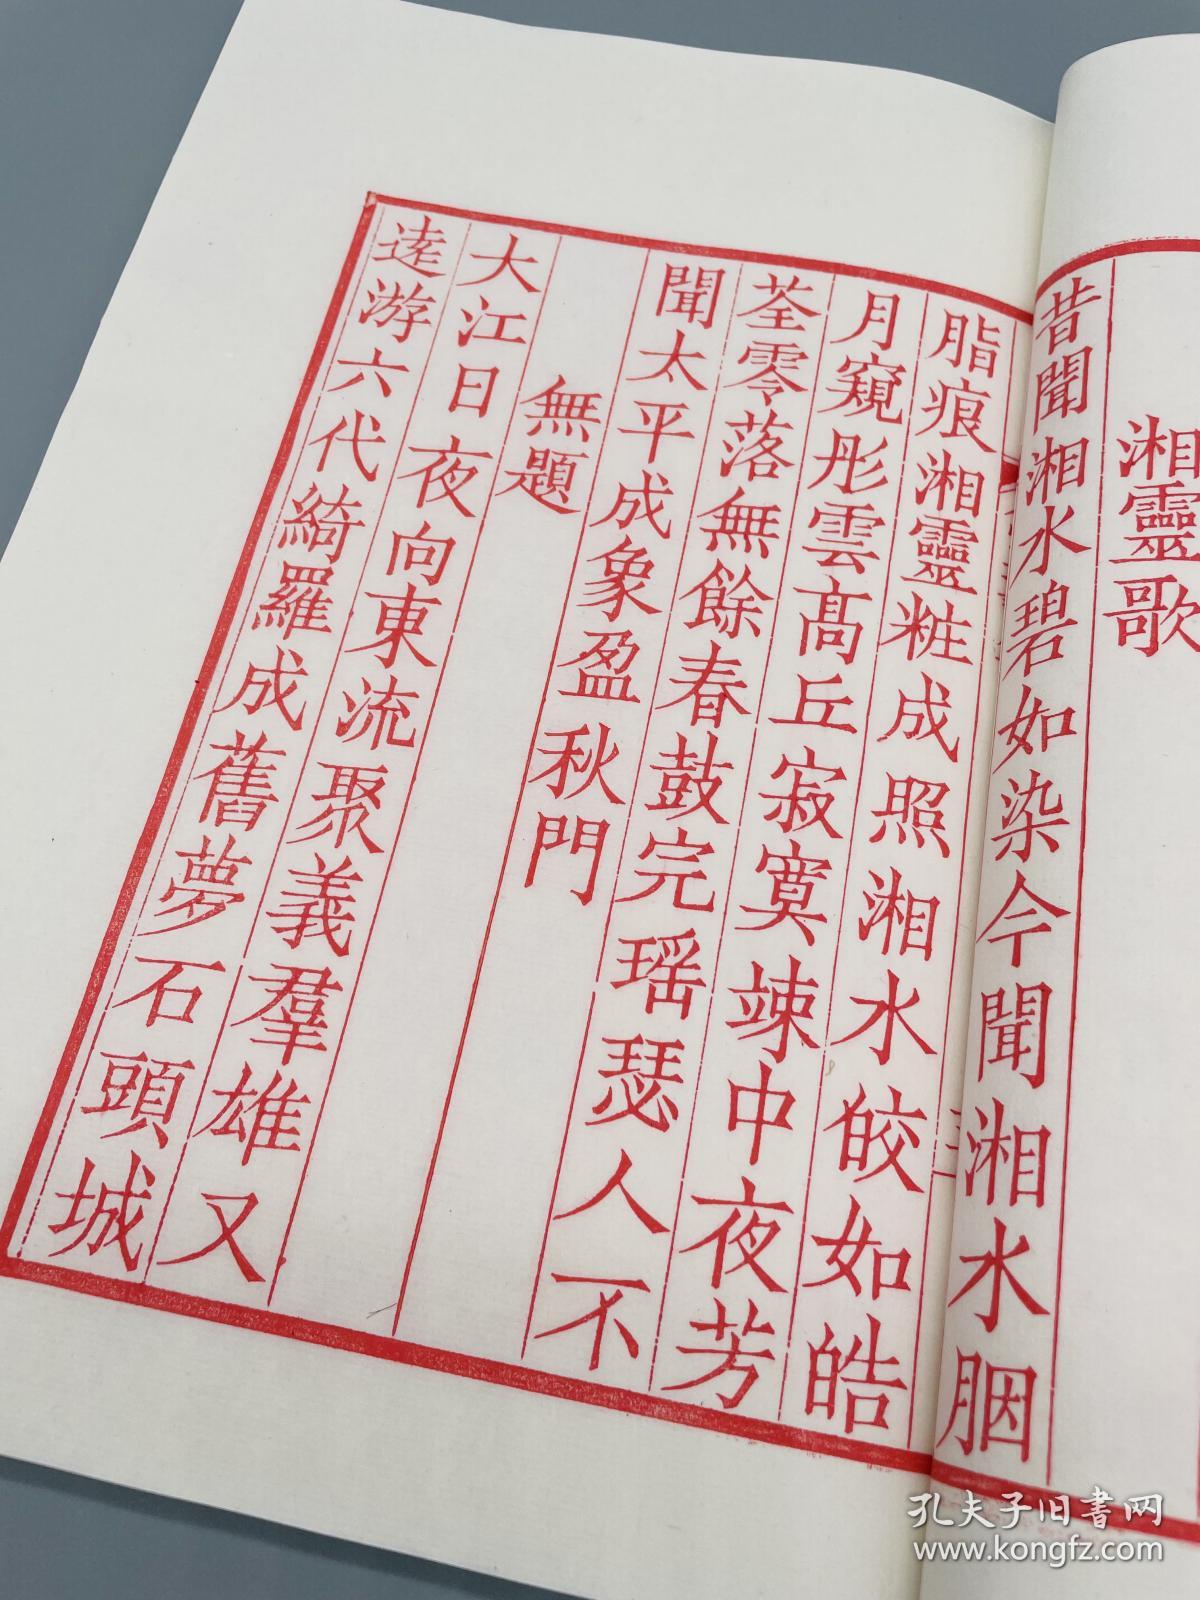 湘靈歌
昔聞湘水碧如染今聞湘水胭
脂痕湘靈粧成照湘水皎如皓
月窺彤雲髙丘寂寞竦中夜芳
荃零落無餘春鼓完瑶瑟人不
聞太平成象盈秋門
無題
大江日夜向東流聚義羣雄又
逺游六代綺羅成舊夢石頭城
孔夫子旧书网
www.kongfz.com